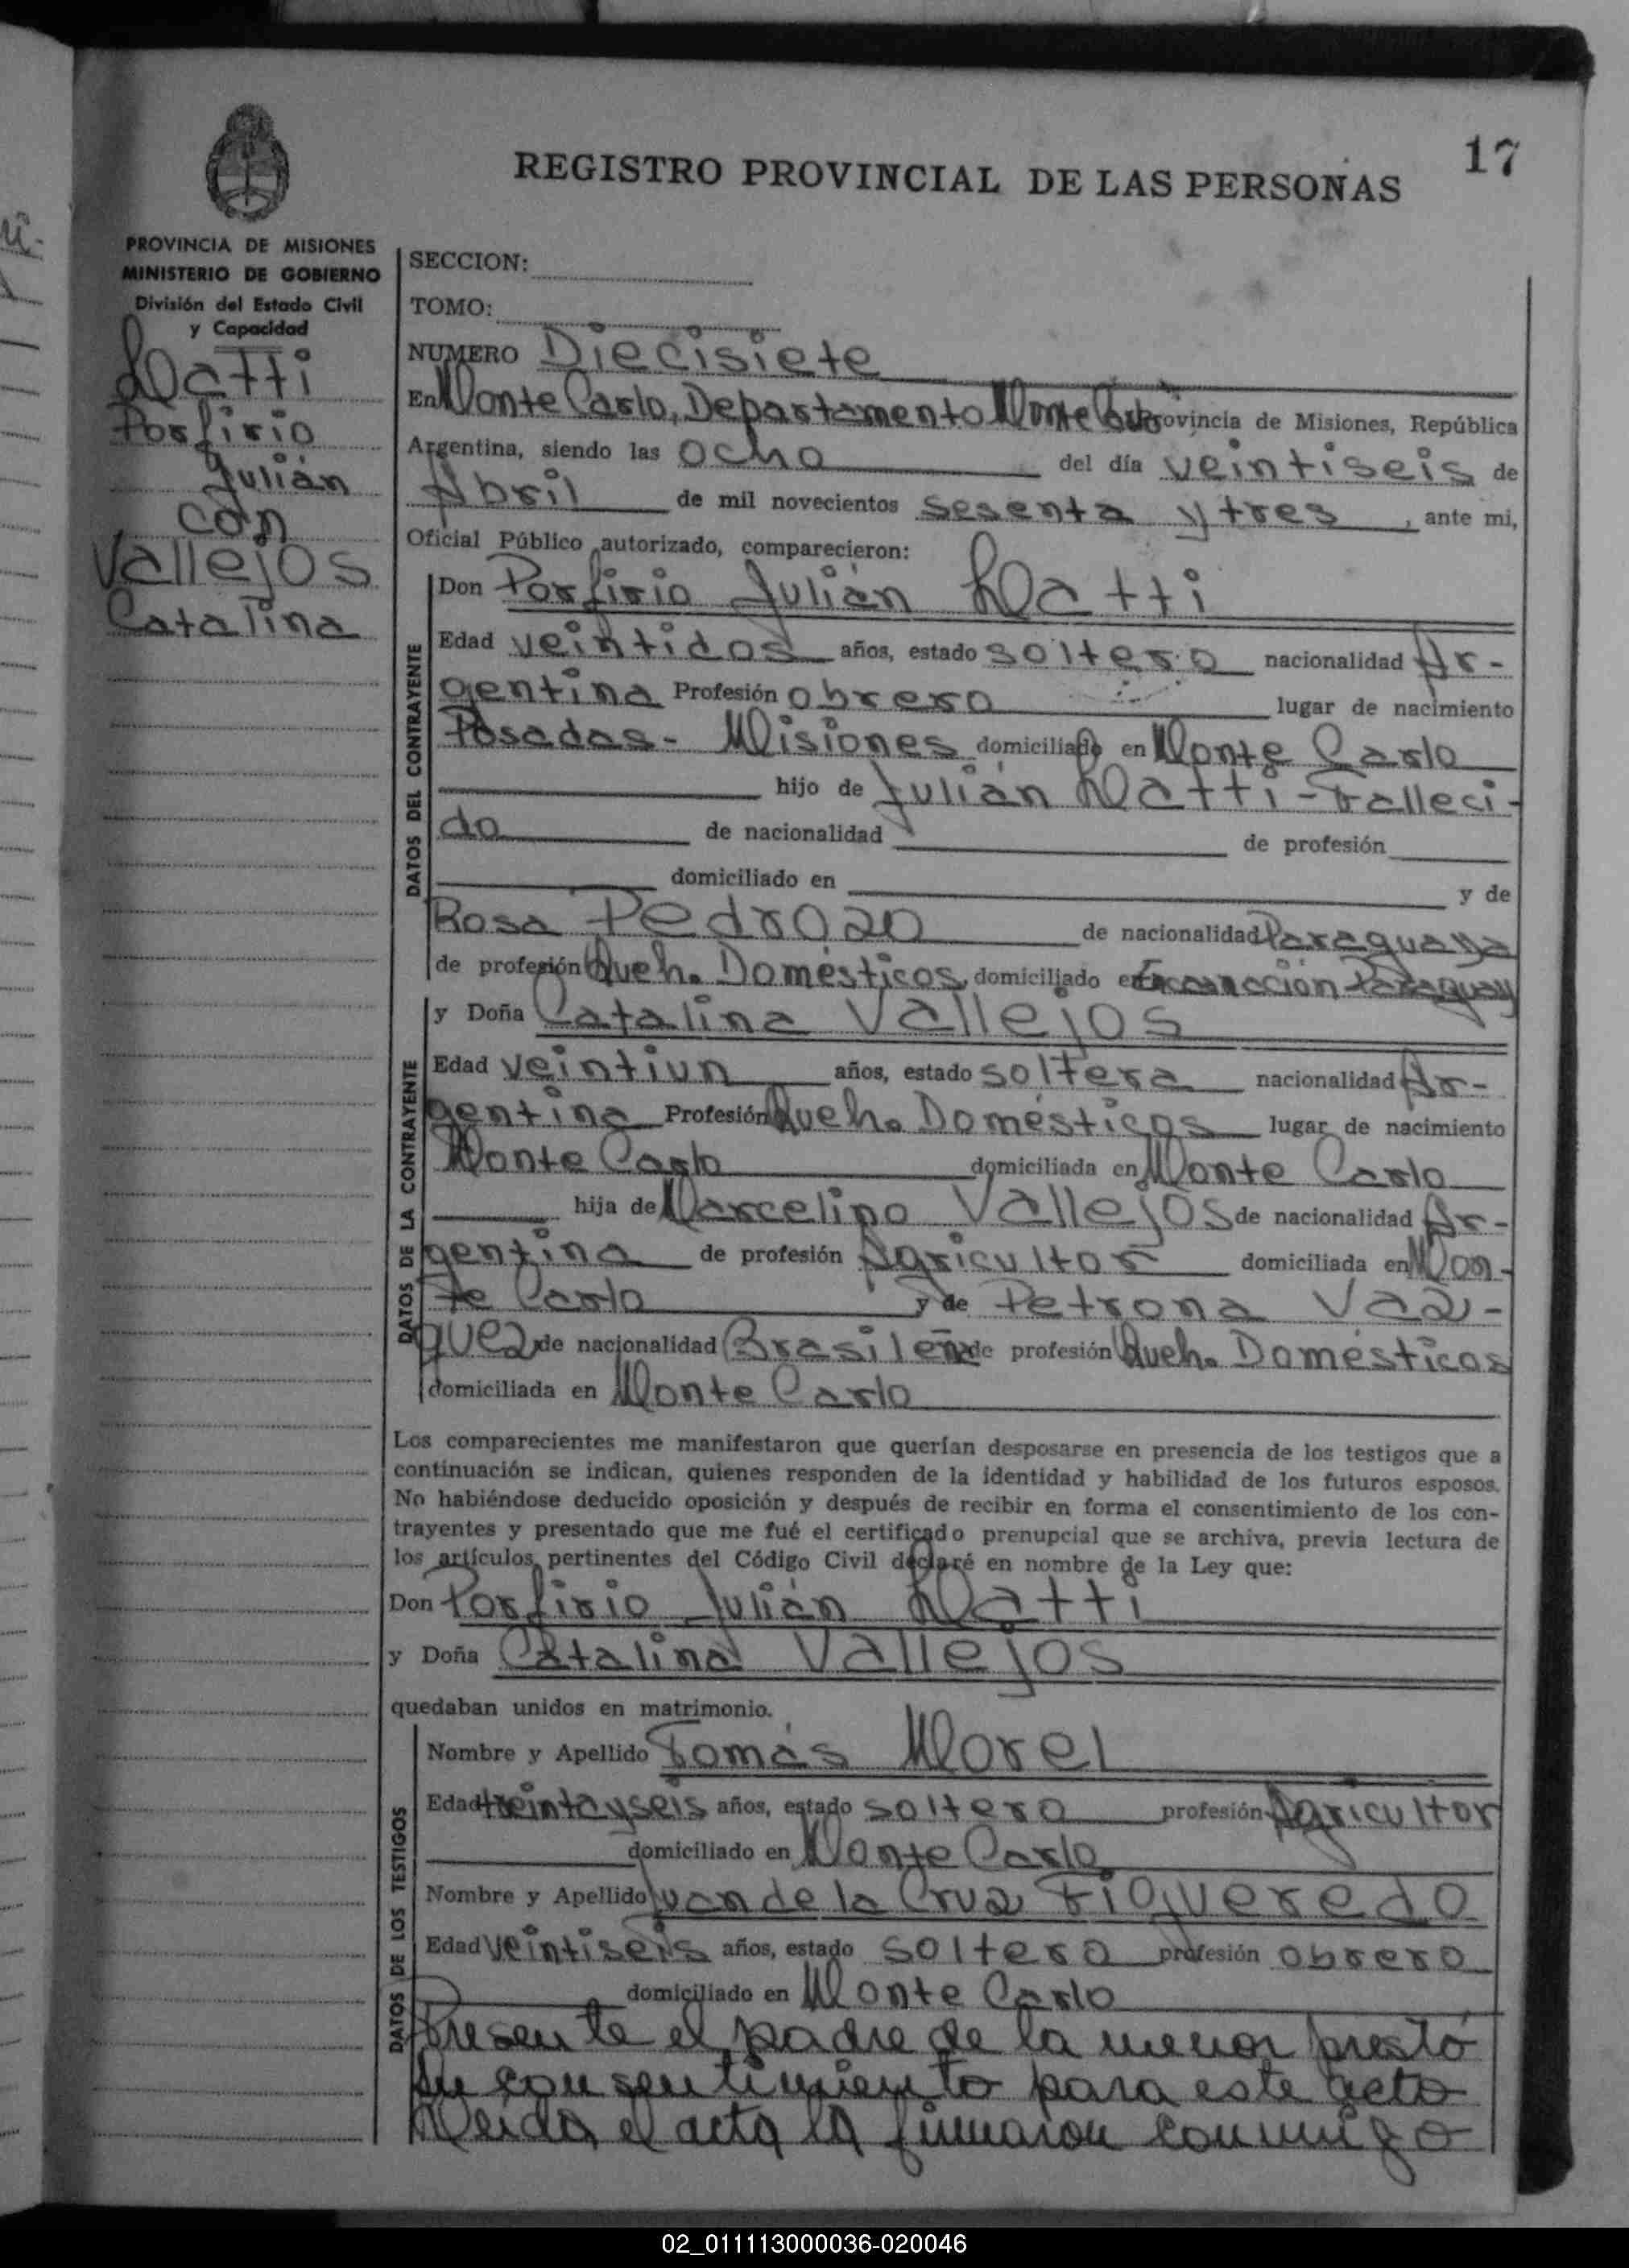 17
REGISTRO PROVINCIAL DE LAS PERSONAS
PROVINCIA DE MISIONES
MINISTERIO DE GOBIERNO
División del Estado Civil
y Capacidad
Porfirio
Julián
con
Vallejos
Catalina
SECCION:
TOMO:
NUMERO Diecisiete
En Monte Carlo, Departamento Monte Carlo Provincia de Misiones, República
Argentina, siendo las ocho del día veintiseis de
Abril de mil novecientos sesenta y tres, ante mi,
Oficial Público autorizado, comparecieron:
DATOS DEL CONTRAYENTE
Don Porfirio Julián
Edad veintidos años, estado soltero nacionalidad Ar-
gentina Profesión obrero lugar de nacimiento
Posadas - Misiones domiciliado en Monte Carlo
hijo de Julián - Falleci-
do de nacionalidad de profesión
domiciliado en y de
Rosa Pedrozo de nacionalidad Paraguaya
de profesión Queh. Domésticos, domiciliado en Encarnación Paraguay
DATOS DE LA CONTRAYENTE
y Doña Catalina Vallejos
Edad veintiun años, estado soltera nacionalidad Ar-
gentina Profesión Queh. Domésticos lugar de nacimiento
Monte Carlo domiciliada en Monte Carlo
hija de Marcelino Vallejos de nacionalidad Ar-
gentina de profesión Agricultor domiciliada en Mon-
te Carlo y de Petrona Vaz-
quez de nacionalidad Brasileña de profesión Queh. Domésticos
domiciliada en Monte Carlo
Los comparecientes me manifestaron que querían desposarse en presencia de los testigos que a
continuación se indican, quienes responden de la identidad y habilidad de los futuros esposos.
No habiéndose deducido oposición y después de recibir en forma el consentimiento de los con-
trayentes y presentado que me fué el certificado prenupcial que se archiva, previa lectura de
los artículos pertinentes del Código Civil declaré en nombre de la Ley que:
Don Porfirio Julián
y Doña Catalina Vallejos
quedaban unidos en matrimonio.
DATOS DE LOS TESTIGOS
Nombre y Apellido Tomás Morel
Edad treinta y seis años, estado soltero profesión Agricultor
domiciliado en Monte Carlo
Nombre y Apellido Juan de la Cruz Figueredo
Edad veintiseis años, estado soltero profesión obrero
domiciliado en Monte Carlo
Presente el padre de la menor prestó
su consentimiento para este acto
Leida el acta la firmaron conmigo
02_011113000036-020046